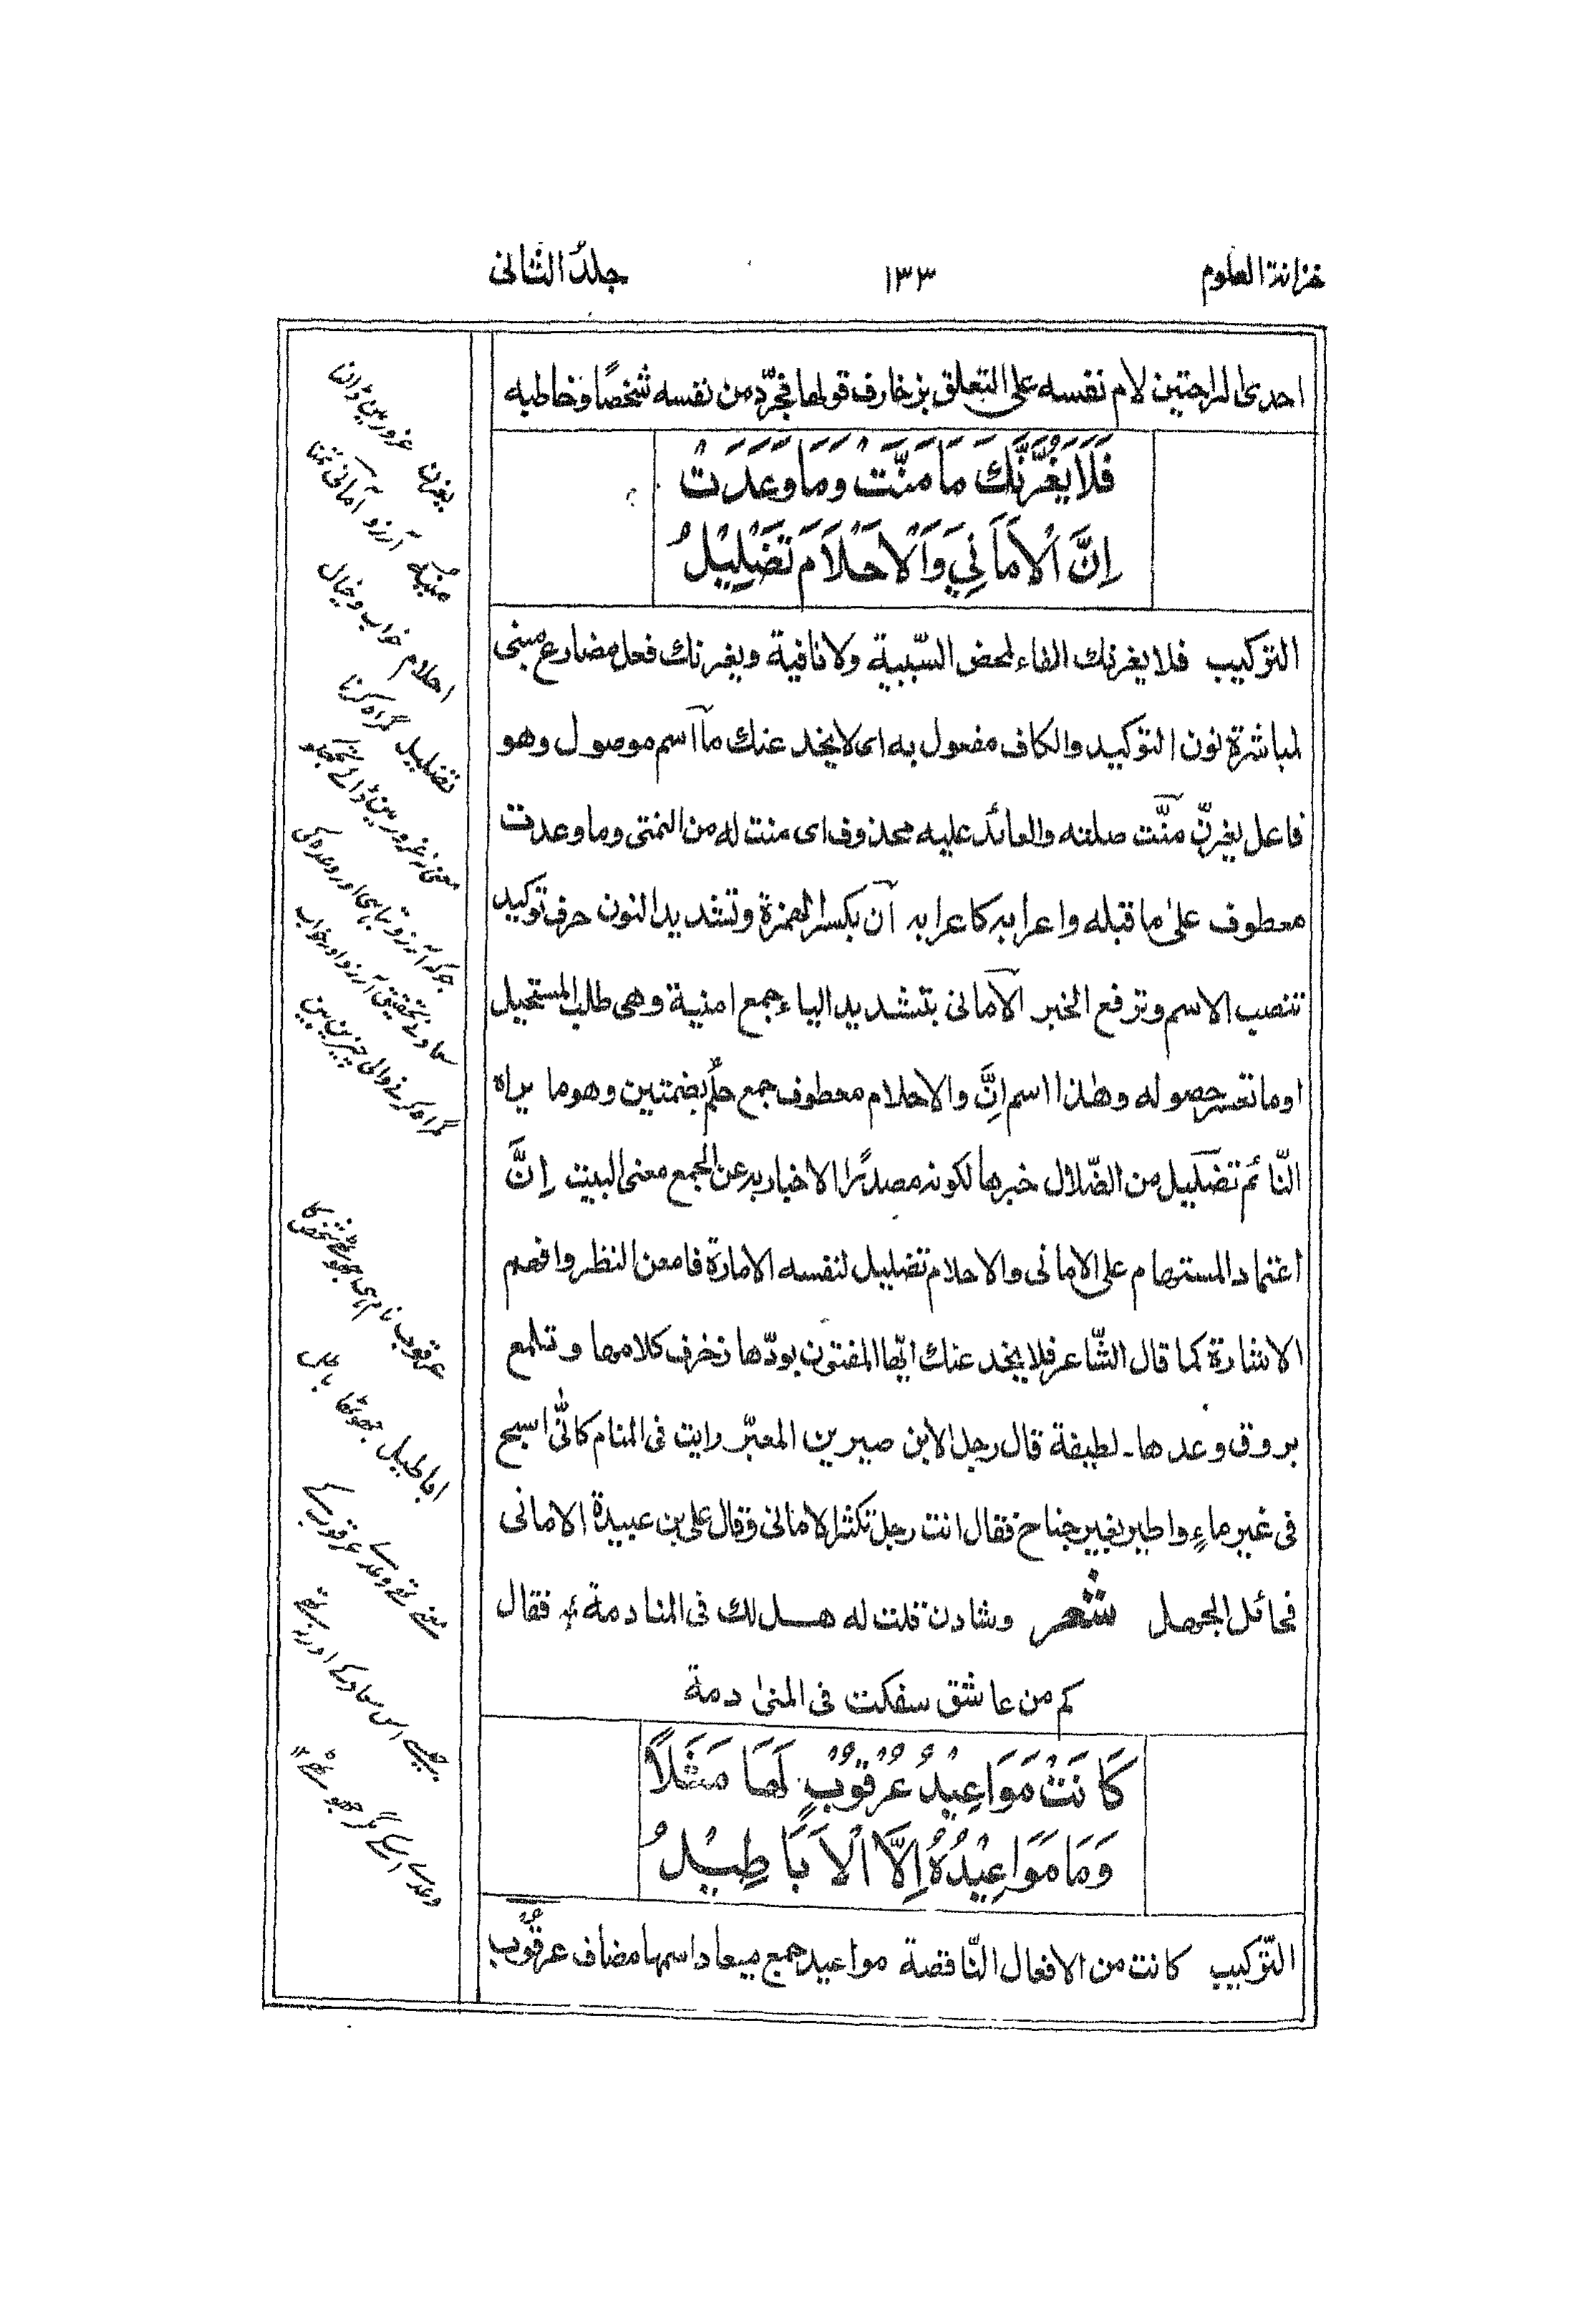 خزانة العلوم
١٣٣
جلد الثانى
احدى الراحتين لام نفسه على التعلق بزخارف قولها فجرّد من نفسه شخصًا وخاطبه
فَلَا يَغُرَّنَّكَ مَا مَنَّتْ وَمَا وَعَدَتْ
اِنَّ الْاَمَانِيَ وَالْاَحْلَامَ تَضْلِيْلُ
التركيب فلا يغرنك الفاء لمحض السّببية ولا نافية ويغرنك فعل مضارع مبنى
لمباشرة نون التوكيد والكاف مفعول به اى لا يخدعنك ما اسم موصول وهو
فاعل يغرنّ منّت صلته والعائد عليه محذوف اى منت له من التمنى وما وعدت
معطوف على ما قبله واعرابه كاعرابه ان بكسر الهمزة وتشديد النون حرف توكيد
تنصب الاسم وترفع الخبر الامانى بتشديد الياء جمع امنية وهى طلب المستحيل
او ما تعسر حصوله وهذا اسم اِنَّ والاحلام معطوف جمع حلُم بضمتين وهو ما يراه
النّائم تضليل من الضّلال خبرها لكونه مصدرًا الاخبار به عن الجمع معنى البيت اِنَّ
اعتماد المستهام على الامانى والاحلام تضليل لنفسه الامارة فامعن النظر وافهم
الاشارة كما قال الشّاعر فلا يخدعنك ايّها المفتون بودّها زخرف كلامها وتلمع
بروق وعدها۔ لطيفة قال رجل لابن صيرين المعبّر رايت فى المنام كانّى اسبح
فى غير ماءٍ واطير بغير جناح فقال انت رجل تكثر الامانى وقال على بن عبيدة الامانى
مخائل الجهل شعر وشادن قلت له هل لك فى المنادمة فقال
كم من عاشق سفكت فى المنى دمة
كَانَتْ مَوَاعِيْدُ عُرْقُوْبٍ لَهَا مَثَلًا
وَمَا مَوَاعِيْدُهُ اِلَّا الْاَبَاطِيْلُ
التّركيب كانت من الافعال النّاقصة مواعيد جمع ميعاد اسمها مضاف عرقوب
يغرن غرور مين ڈالنا
منية آرزو آمانى تمنا
احلام خواب و خيال
تضليل گمراه کرنا
عرقوب نام
اباطيل جھوٹھا باطل